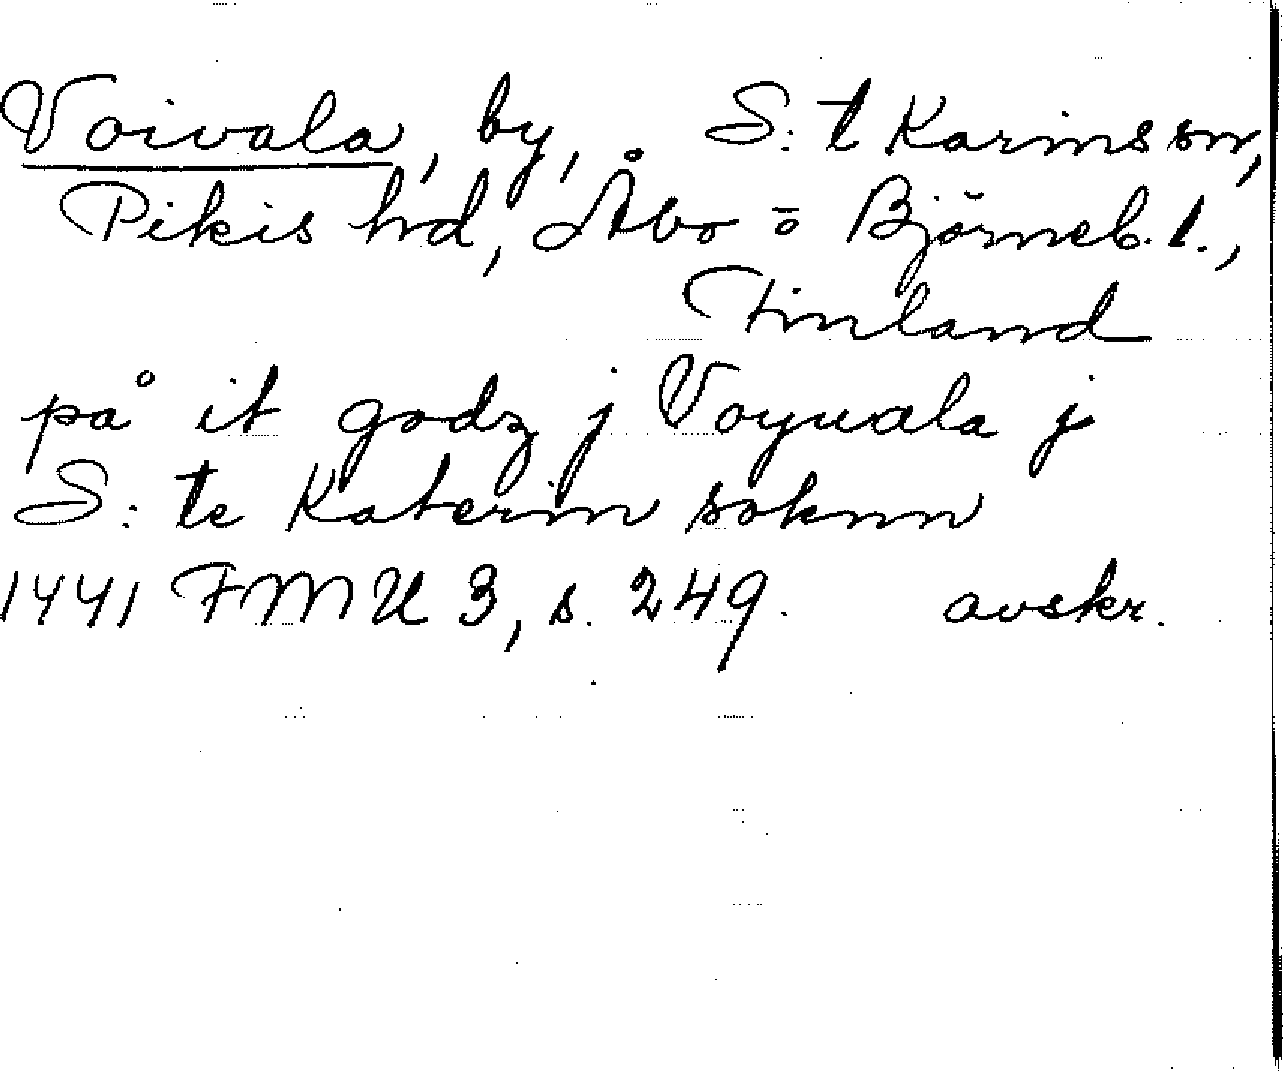 Voivala, by, S:t Karins sn,
Pikis hd, Åbo o Björneb. l.,
Finland
på it godz j Voyuala j
S:te Katerin soknn
1441 FMU 3, s. 249. avskr.